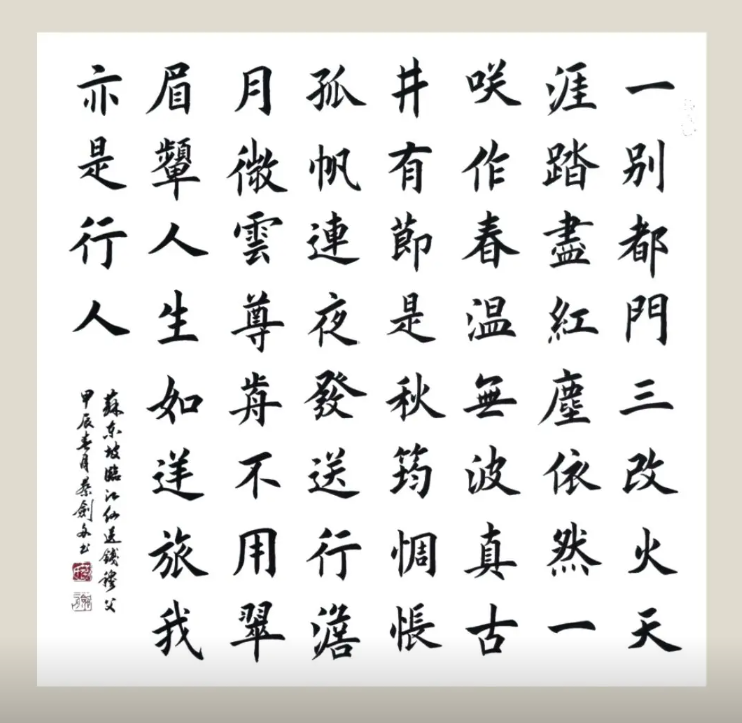 一别都門三改火天
涯踏盡紅塵依然一
咲作春温無波真古
井有節是秋筠惆悵
孤帆連夜發送行澹
月微雲尊歬不用翠
眉顰人生如逆旅我
亦是行人
蘇东坡臨江仙送錢穆父
甲辰春月蔡劍书